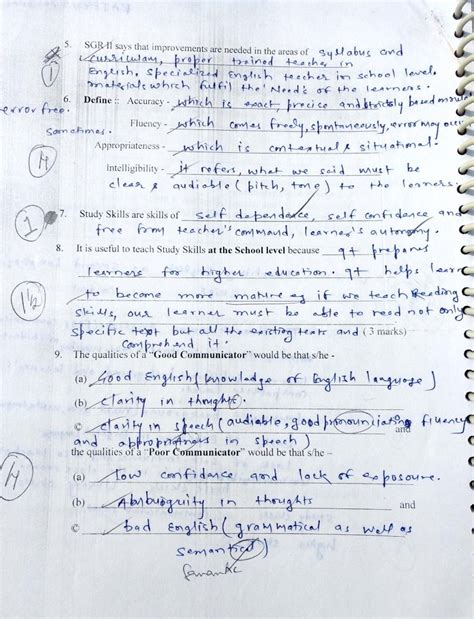 5. SGR-II says that improvements are needed in the areas of syllabus and
curriculum, proper trained teacher in
English, specialized English teacher in school level.
materials which fulfil the Needs of the learners.
1
6. Define :: Accuracy - which is exact, precise and
error free.
Fluency - which comes freely, spontaneously, error may occur
sometimes.
Appropriateness - which is contextual & situational.
Intelligibility - it refers, what we said must be
clear & audiable (pitch, tone) to the lerners.
4
7. Study Skills are skills of self dependence, self confidence and
free from teacher's command, learner's autonomy.
1
8. It is useful to teach Study Skills at the School level because It prepares
learners for higher education. It helps learn
to become more mature eg if we teach Reading
skills, our learner must be able to read not only
specific text but all the existing texts and (3 marks)
comprehend it.
1½
9. The qualities of a "Good Communicator" would be that s/he -
(a) Good English (knowledge of English language)
(b) clarity in thought.
© clarity in speech (audiable, good pronounciating fluency
and
and appropriatness in speech)
the qualities of a "Poor Communicator" would be that s/he –
4
(a) low confidance and lack of exposoure.
(b) Ambuoguity in thoughts and
© bad English (grammatical as well as
semantical)
Semantic